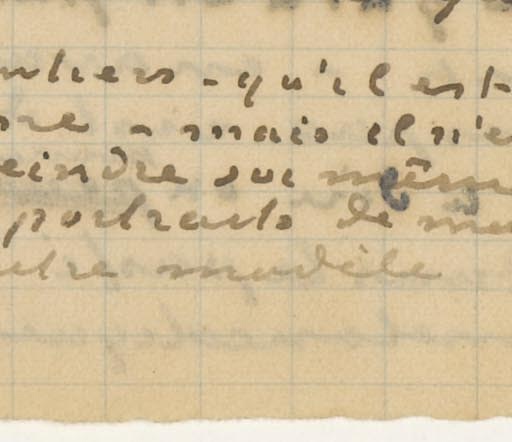 - qu'il est
- mais il n'e
eindre soi même
portraits de
utre modèle